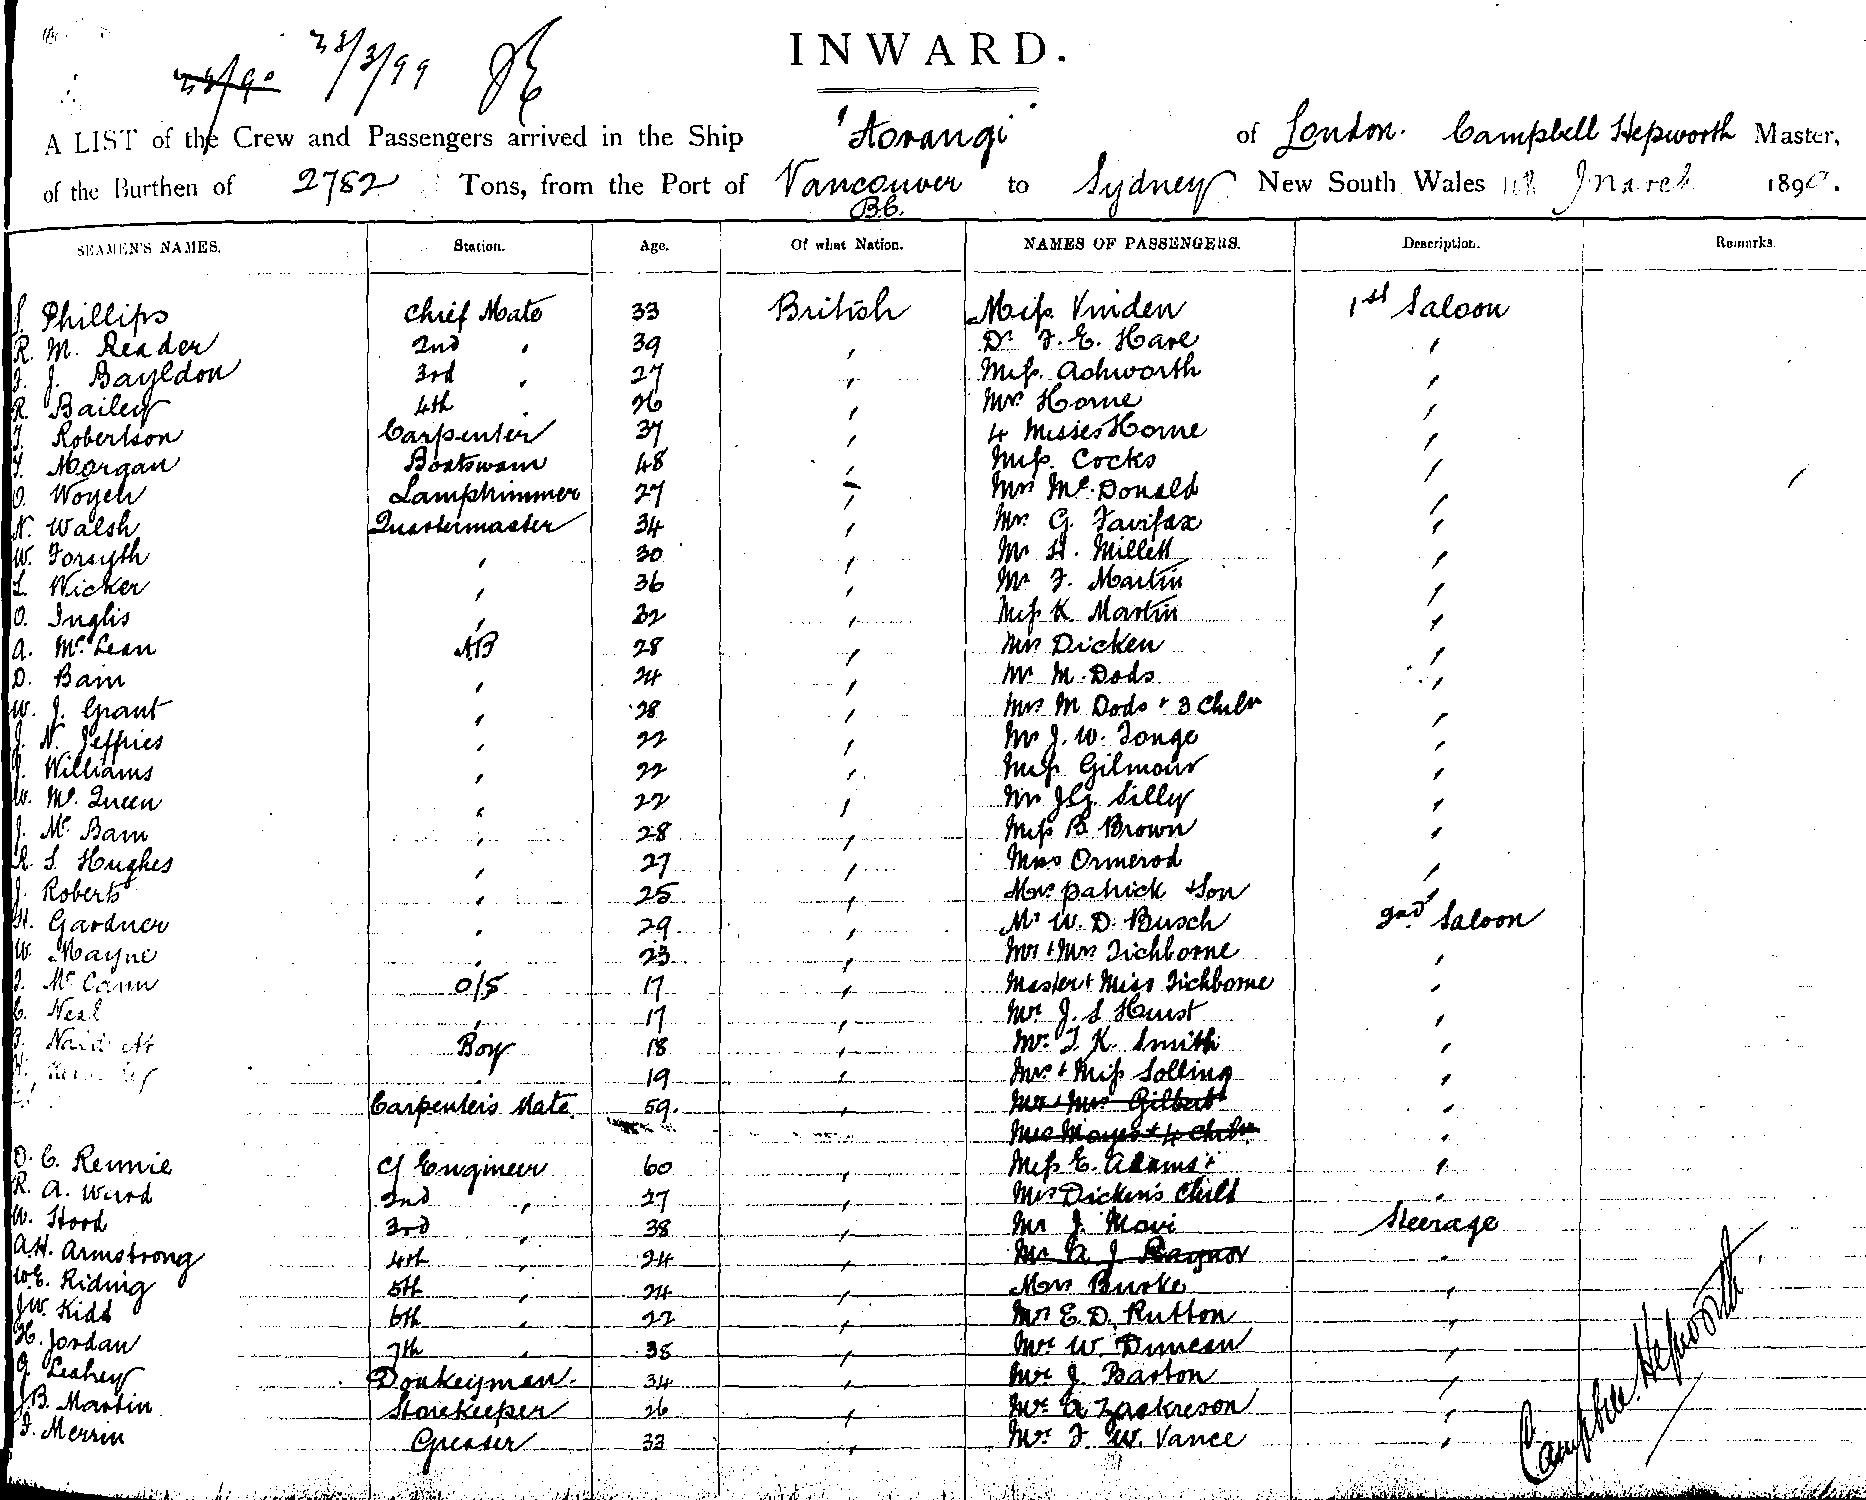 28/90 28/3/99
INWARD.
A LIST of the Crew and Passengers arrived in the Ship 'Aorangi' of London. Campbell Hepworth Master,
of the Burthen of 2782 Tons, from the Port of Vancouver B.C. to Sydney New South Wales March 189
SEAMEN'S NAMES. Station. Age. Of what Nation. NAMES OF PASSENGERS. Description. Remarks.
Phillips Chief Mate 33 British Miss Vinden 1st Saloon
R. M. Reader 2nd " 39 " Dr F. E. Hare "
J. Bayldon 3rd " 27 " Miss Ashworth "
R. Bailey 4th 26 " Mrs Horne "
Robertson Carpenter 37 " 4 Misses Horne "
Morgan Boatswain 48 " Miss Cocks "
O. Woyen Lamptrimmer 27 " Mrs McDonald "
N. Walsh Quartermaster 34 " Mr G. Fairfax "
W. Forsyth " 30 " Mr H. Millett "
L. Wicker " 36 " Mr F. Martin "
O. Inglis " 32 " Miss K Martin "
A. McLean AB 28 " Mrs Dicken "
D. Bain " 24 " Mr M. Dods "
W. J. Grant " 28 " Mrs M Dods + 3 Childn "
J. N. Jeffries " 22 " Mr J. W. Tonge "
J. Williams " 22 " Miss Gilmour "
W. McQueen " 22 " Mr J.G. Silly "
J. McBain " 28 " Miss B. Brown "
R. S. Hughes " 27 " Miss Ormerod "
J. Roberts " 25 " Mrs Patrick + Son "
H. Gardner " 29 " Mr W. D. Busch 2nd Saloon
W. Mayne " 23 " Mr + Mrs Tichborne "
McCann O/S 17 " Master + Miss Tichborne "
C. Neal " 17 " Mr J. S Hurst "
Boy 18 " Mr T. K. Smith "
" 19 " Mrs + Miss Solling "
Carpenter's Mate 59. " Mr + Mrs Gilbert "
Mrs Moyes + 4 Childn "
D. C. Rennie Cf Engineer 60 " Miss E. Adams "
R. A. Wurd 2nd " 27 " Mrs Dicken's Child "
W. Hood 3rd " 38 " Mr J. Movi Steerage
A.H. Armstrong 4th " 24 " Mr A. J. Raynor "
W.E. Riding 5th " 24 " Mrs Burke
J.W. Kidd 6th " 22 " Mr E. D. Rutton "
H. Jordan 7th " 38 " Mr W. Duncan "
J. Leahey Donkeyman. 34 " Mr J. Barton "
J.B. Martin Storekeeper 26 " Mr A Zackreson "
F. Merrin Greaser 33 " Mr F. W. Vance "
Campbell Hepworth